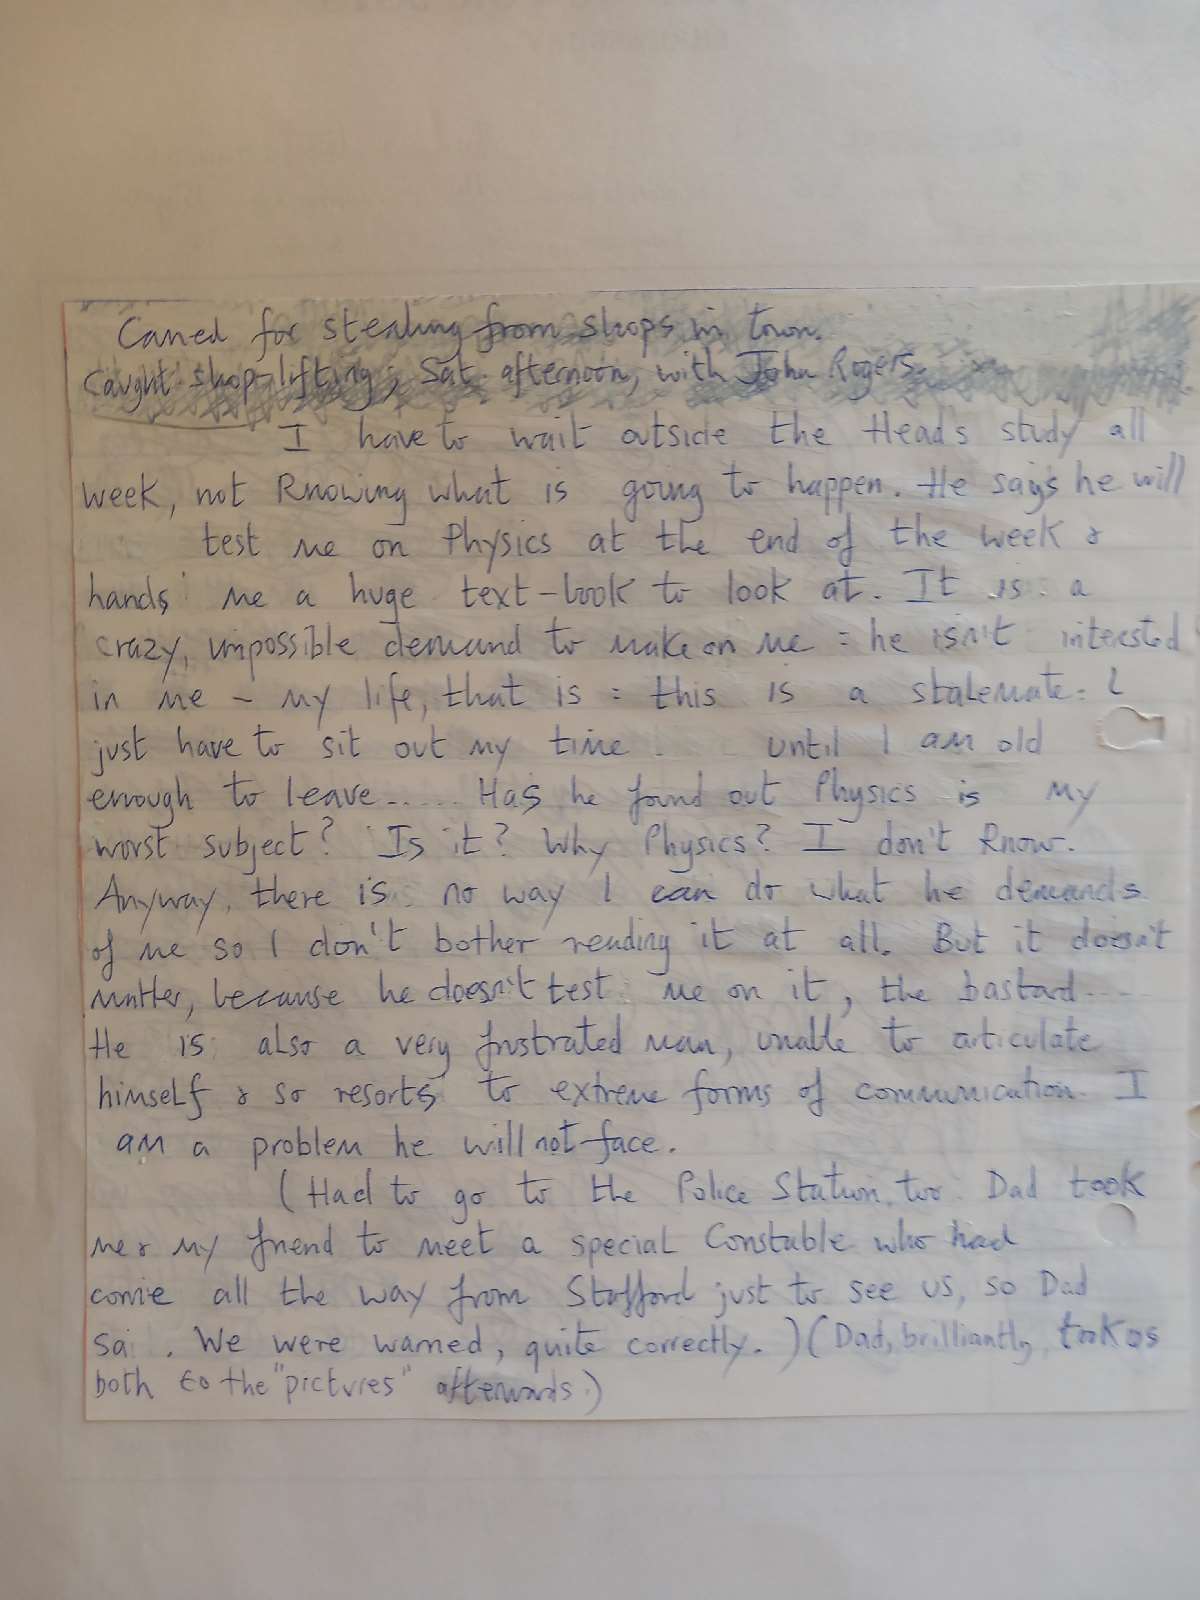 Caned for stealing from shops in town.
Caught shop-lifting, Sat. afternoon, with John Rogers.
I have to wait outside the Head's study all
week, not knowing what is going to happen. He says he will
test me on Physics at the end of the week &
hands me a huge text-book to look at. It is a
crazy, impossible demand to make on me : he isn't interested
in me - my life, that is : this is a stalemate : I
just have to sit out my time . until I am old
enough to leave..... Has he found out Physics is my
worst subject? Is it? Why Physics? I don't know.
Anyway, there is no way I can do what he demands
of me so I don't bother reading it at all. But it doesn't
matter, because he doesn't test me on it, the bastard....
He is also a very frustrated man, unable to articulate
himself & so resorts to extreme forms of communication. I
am a problem he will not face.
(Had to go to the Police Station, too. Dad took
me & my friend to meet a special Constable who had
come all the way from Stafford just to see us, so Dad
sai . We were warned, quite correctly.) (Dad, brilliantly, took us
both to the "pictures" afterwards.)